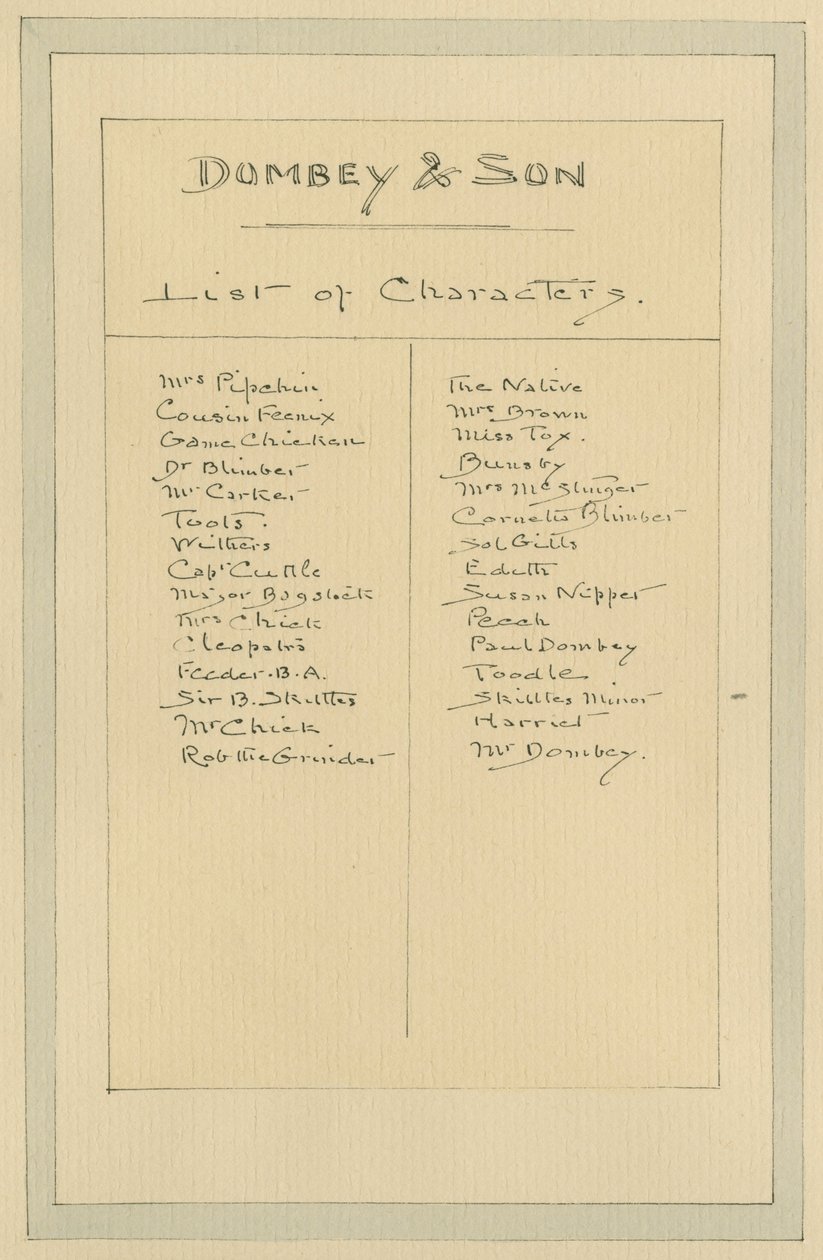 DOMBEY & SON
List of Characters.
Mrs Pipchin
Cousin Feenix
Game Chicken
Dr Blimber
Mr Carker
Toots.
Withers
Capt Cuttle
Major Bagstock
Mrs Chick
Cleopatra
Feeder. B. A.
Sir B. Skittles
Mr Chick
Rob the Grinder
The Native
Mrs Brown
Miss Tox.
Bunsby
Mrs McStinger
Cornelia Blimber
Sol Gills
Edith
Susan Nipper
Peech
Paul Dombey
Toodle
Skittles Minor
Harriet
Mr Dombey.